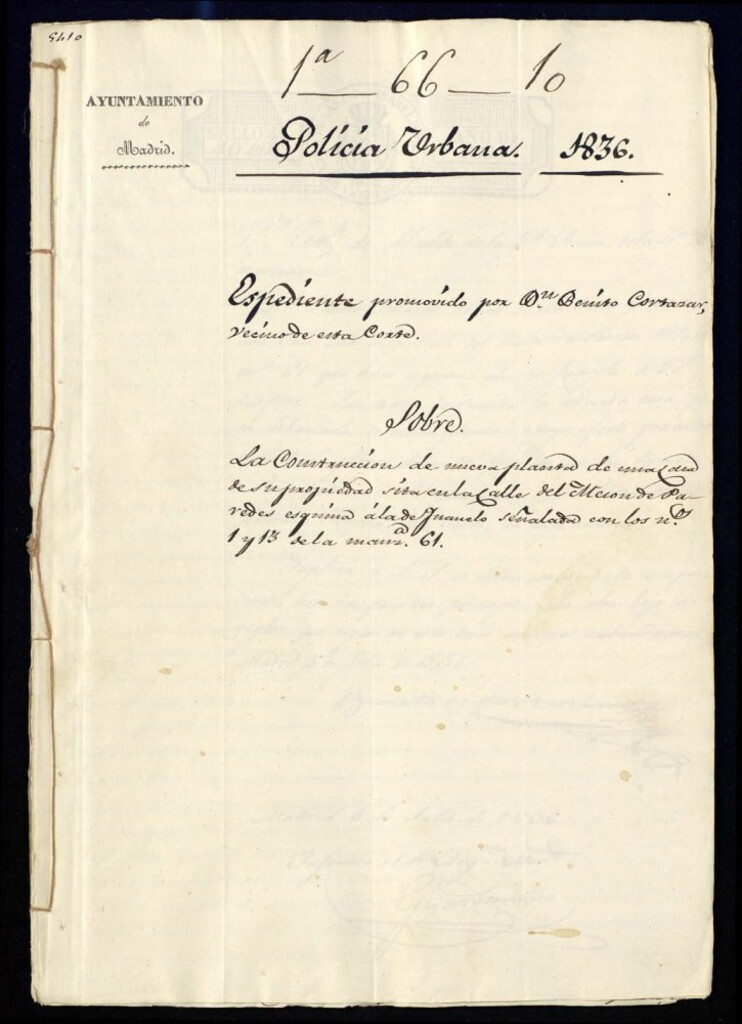 5410
1ª — 66 — 10
AYUNTAMIENTO
de
Madrid.
Policía Urbana. 1836.
Espediente promovido por Dn. Benito Cortazar,
vecino de esta Corte.
Sobre.
La Construccion de nueva planta de una Casa
de su propiedad sita en la Calle del Meson de Pa-
redes esquina á la de Juanelo señalada con los n.os
1 y 13 de la manz.a 61.